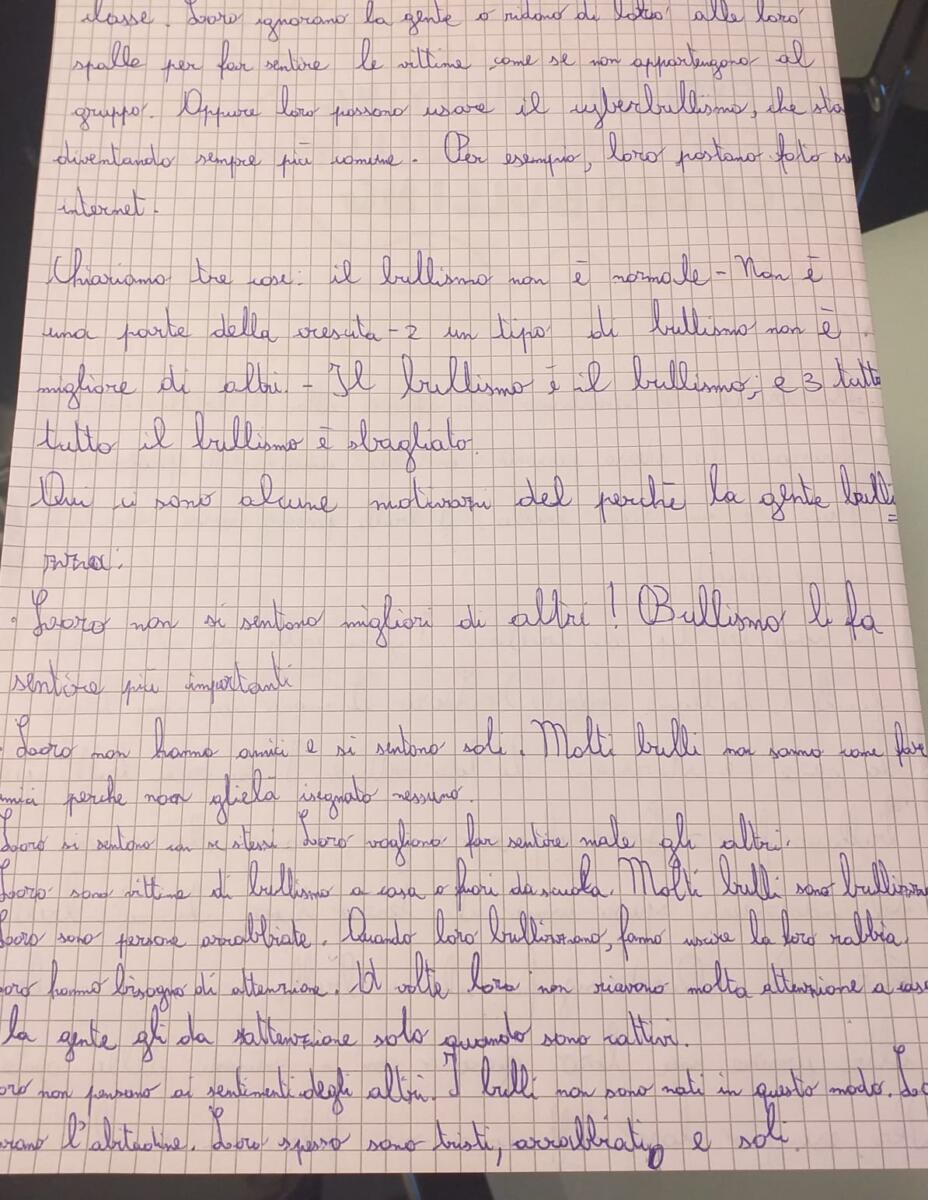 classe. Loro ignorano la gente o ridono di loro alle loro
spalle per far sentire le vittime come se non appartengono al
gruppo. Oppure loro possono usare il cyberbullismo, che sta
diventando sempre più comune. Per esempio, loro postano foto su
internet.
Chiariamo tre cose: il bullismo non è normale - Non è
una parte della cresuta - 2 un tipo di bullismo non è
migliore di altri. - Il bullismo è il bullismo; e 3 tutto
tutto il bullismo è sbagliato.
Qui ci sono alcune del perchè la gente bulli
zza:
· Loro non si sentono migliori di altri! Bullismo li fa
sentire più importanti
. Loro non hanno amici e si sentono soli. Molti bulli non sanno come fare
mici perche non glielà isegnato nessuno.
Loro si sentono con se stessi. Loro vogliono far sentire male gli altri.
Loro sono vittime di bullismo a casa o fuori da scuola. Molti bulli sono
Loro sono persone arrabbiate. Quando loro bullizzano, fanno uscire la loro rabbia.
oro hanno bisogno di attenzione. A volte loro non ricevono molta attenzione a casa
la gente gli da attenzione solo quando sono cattivi.
oro non pensano ai sentimenti degli altri. I bulli non sono nati in questo modo. Lo
rano l'abitudine. Loro spesso sono tristi, arrabbiati, e soli.